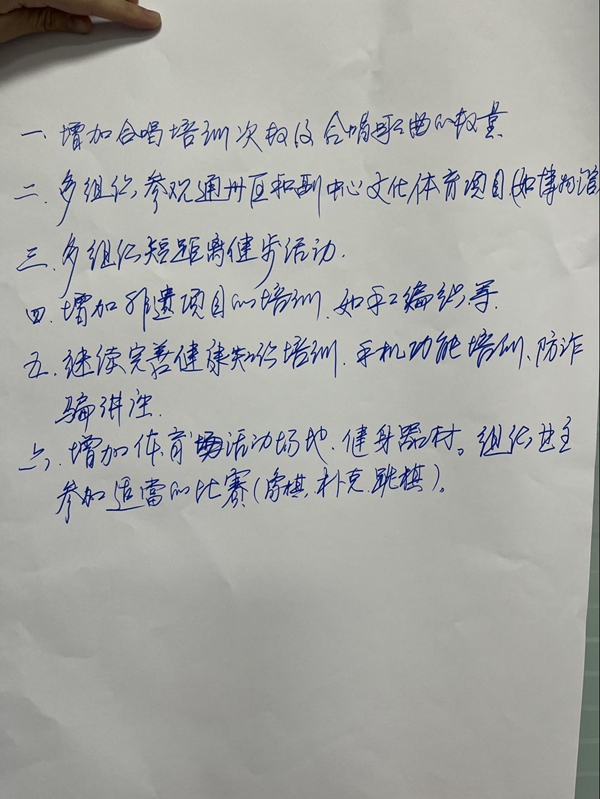 一、增加合唱培训次数及合唱歌曲的数量
二、多组织参观通州区和副中心文化体育项目(如博物馆
三、多组织短距离健步活动.
四、增加非遗项目的培训、如手工编织等.
五、继续完善健康知识培训、手机功能培训、防诈
骗讲座.
六、增加体育活动场地、健身器材。组织
参加适当的比赛(象棋、扑克、跳棋)。